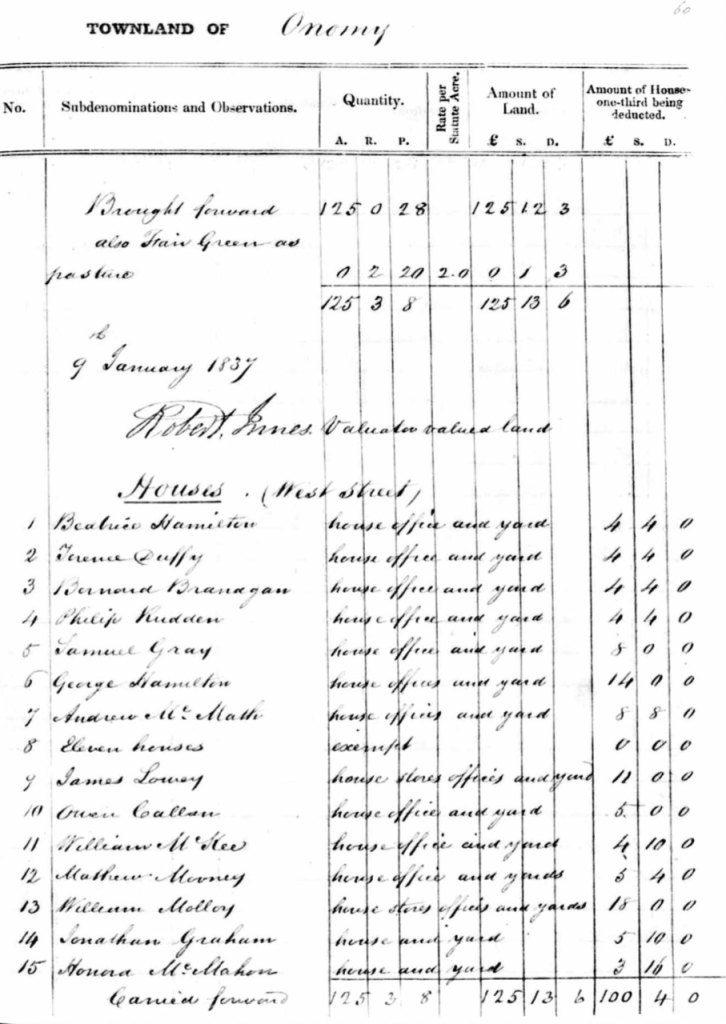 60
TOWNLAND OF Onomy
No. Subdenominations and Observations. Quantity. A. R. P. Rate per Statute Acre. Amount of Land. £ S. D. Amount of House- one-third being deducted. £ S. D.
Brought forward 125 0 28 125 12 3
also Fair Green as
pasture 0 2 20 2.0 0 1 3
125 3 8 125 13 6
9th January 1837
Robert Innes. Valuator valued land
Houses. (West Street)
1 Beatrice Hamilton house office and yard 4 4 0
2 Terence Duffy house office and yard 4 4 0
3 Bernard Branagan house office and yard 4 4 0
4 Philip Rudden house office and yard 4 4 0
5 Samuel Gray house office and yard 8 0 0
6 George Hamilton house offices and yard 14 0 0
7 Andrew McMath house offices and yard 8 8 0
8 Eleven houses exempt 0 0 0
9 James Lowey house stores offices and yard 11 0 0
10 Owen Callan house office and yard 5. 0 0
11 William McKee house office and yard 4 10 0
12 Mathew Mooney house office and yards 5 4 0
13 William Molloy house stores offices and yards 18 0 0
14 Jonathan Graham house and yard 5 10 0
15 Honora McMahon house and yard 3 16 0
Carried forward 125 3 8 125 13 6 100 4 0